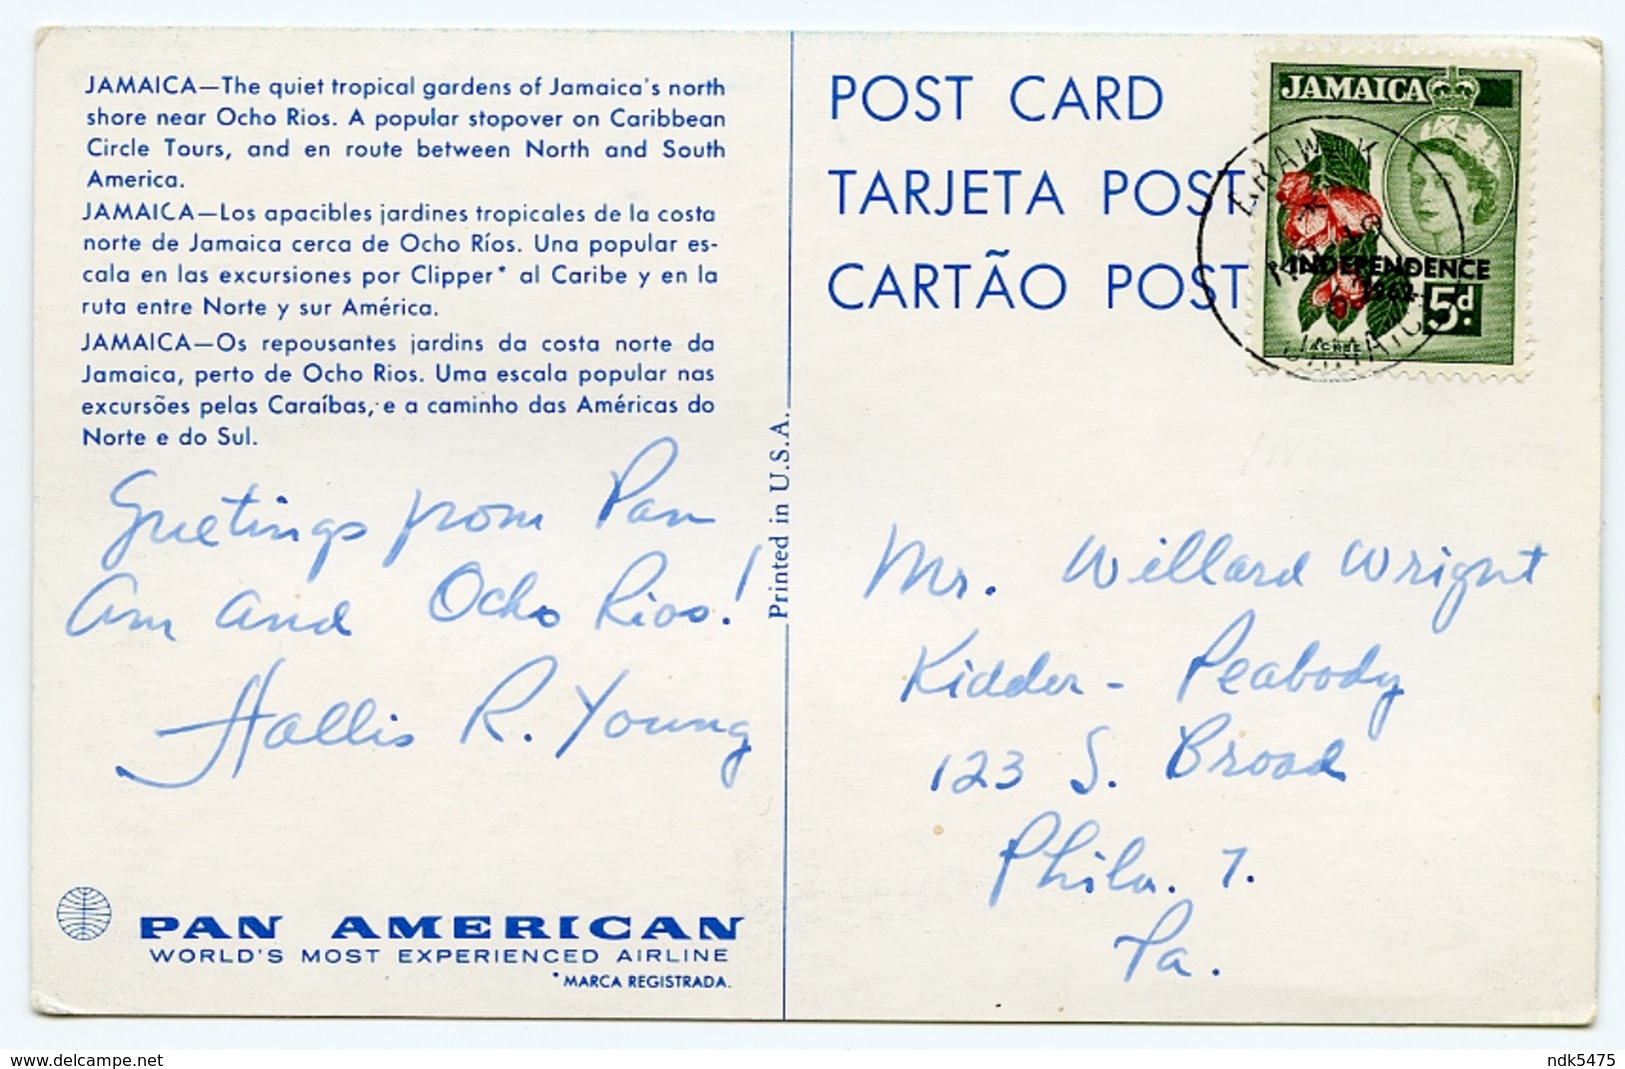 JAMAICA—The quiet tropical gardens of Jamaica's north
shore near Ocho Rios. A popular stopover on Caribbean
Circle Tours, and en route between North and South
America.
JAMAICA—Los apacibles jardines tropicales de la costa
norte de Jamaica cerca de Ocho Ríos. Una popular es-
cala en las excursiones por Clipper* al Caribe y en la
ruta entre Norte y sur América.
JAMAICA—Os repousantes jardins da costa norte da
Jamaica, perto de Ocho Rios. Uma escala popular nas
excursões pelas Caraíbas, e a caminho das Américas do
Norte e do Sul.
Greetings from Pan
Am and Ocho Rios!
Hallis R. Young
PAN AMERICAN
WORLD'S MOST EXPERIENCED AIRLINE
*MARCA REGISTRADA.
Printed in U.S.A.
POST CARD
TARJETA POST
CARTÃO POST
JAMAICA
INDEPENDENCE
5d.
JAMAICA
Mr. Willard Wright
Kidder - Peabody
123 S. Broad
Phila. 7.
Pa.
delcampe.net
ndk5475